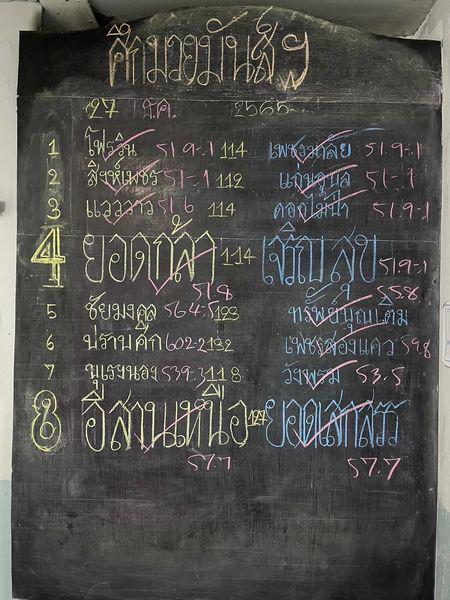 ศึกมวยมันส์ฯ
27 ธ.ค. 2565
1 โฟร์วิน 51.9-.1 114 51.9-1
2 สิงห์เพชร 51-1 112 แก่นจูบล 51-.1
3 แวววาว 51.6 114 ดอกไม้ป่า 51.9-1
4 ยอดกล้า 114 เจริญสุข 51.9-1
51.8 55.8
5 ชัยมงคล 56.4-.5 123 ทรัพย์บุญเติม
6 ปราบศึก 60.2-2 132 เพชรสองแคว 59.8
7 53.9-.3 118 วังพรม 53.5
8 อีสานเหนือ 127
57.7 57.7